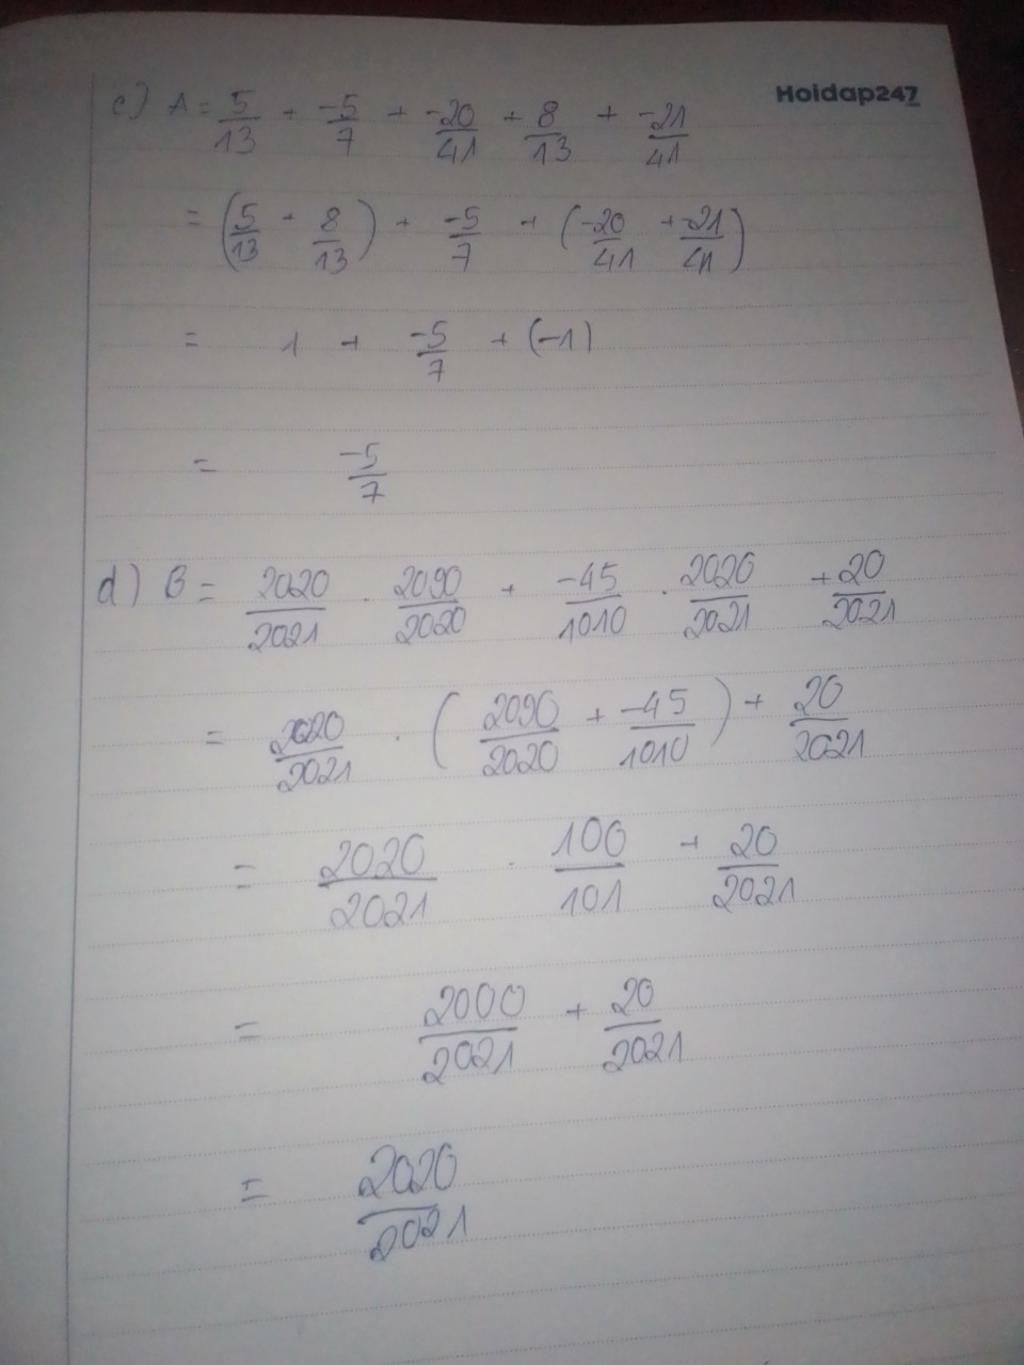 Hoidap247
c) A = 5/13 + -5/7 + -20/41 + 8/13 + -21/41
= (5/13 + 8/13) + -5/7 + (-20/41 + -21/41)
= 1 + -5/7 + (-1)
= -5/7
d) B = 2020/2021 . 2090/2020 + -45/1010 . 2020/2021 + 20/2021
= 2020/2021 . (2090/2020 + -45/1010) + 20/2021
= 2020/2021 . 100/101 + 20/2021
= 2000/2021 + 20/2021
= 2020/2021